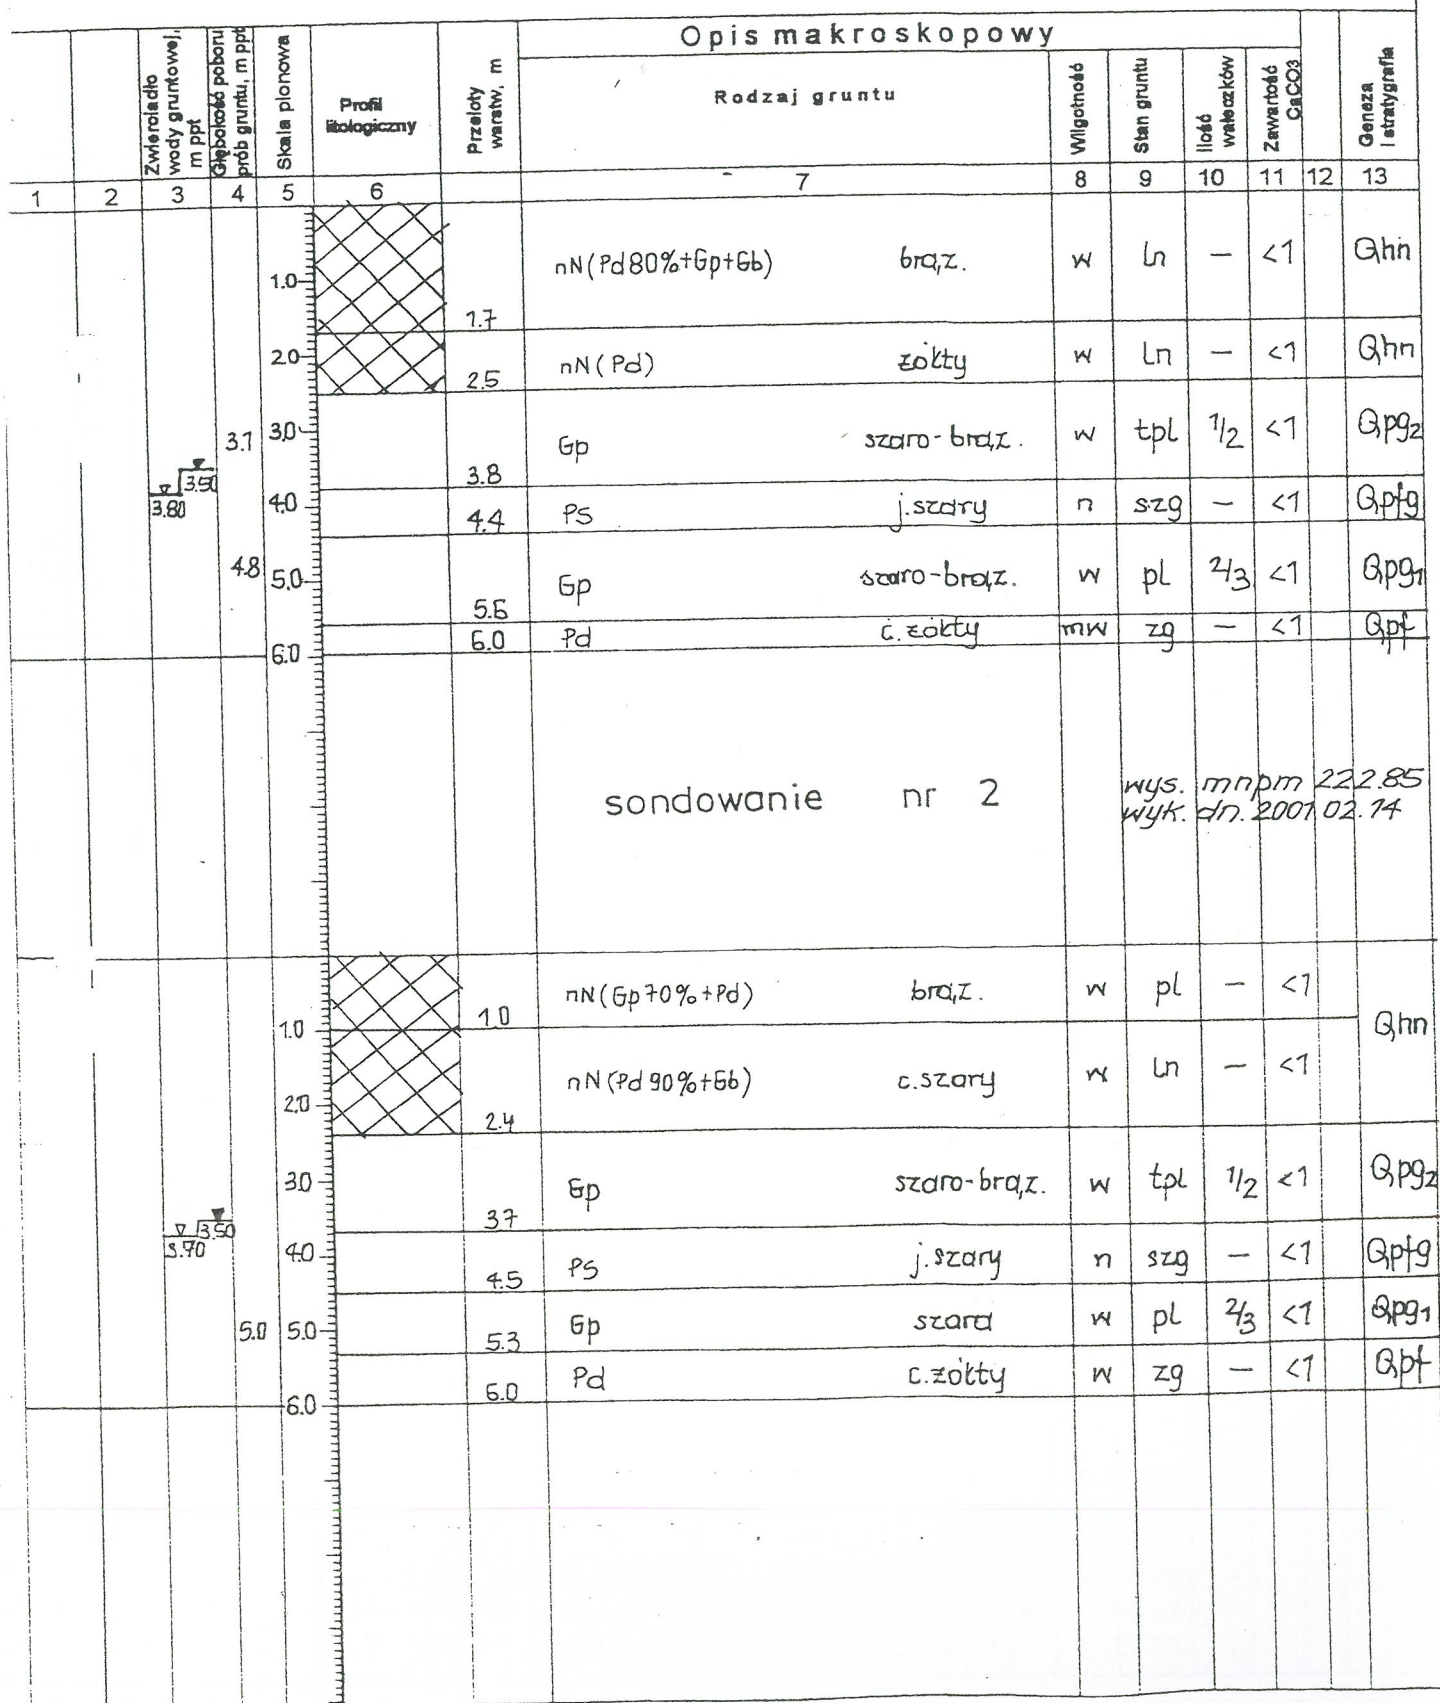 Opis makroskopowy
Zwierciadło wody gruntowej, m ppt
Głębokość poboru prób gruntu, m ppt
Skala pionowa
Profil litologiczny
Przeloty warstw, m
Rodzaj gruntu
Wilgotność
Stan gruntu
Ilość wałeczków
Zawartość CaCO3
Geneza i stratygrafia
1 2 3 4 5 6 7 8 9 10 11 12 13
nN(Pd80%+Gp+Gb) brąz. w ln — <1 Qhn
1.0
1.7
2.0 nN(Pd) żółty w ln — <1 Qhn
2.5
3.1 3.0 Gp szaro-brąz. w tpl 1/2 <1 Qpg2
3.8
3.50
3.80 4.0 4.4 PS j.szary n szg — <1 Qpfg
4.8 5.0 Gp szaro-brąz. w pl 2/3 <1 Qpg1
5.6
6.0 6.0 Pd c.żółty mw zg — <1 Qpf
sondowanie nr 2
wys. mnpm 222.85
wyk. dn. 2001.02.14
nN(Gp70%+Pd) brąz. w pl — <1
1.0 1.0
Qhn
nN(Pd90%+Gb) c.szary w ln — <1
2.0 2.4
3.0 Gp szaro-brąz. w tpl 1/2 <1 Qpg2
3.7
3.50
3.70 4.0 4.5 PS j.szary n szg — <1 Qpfg
5.0 5.0 5.3 Gp szara w pl 2/3 <1 Qpg1
Pd c.żółty w zg — <1 Qpf
6.0 6.0